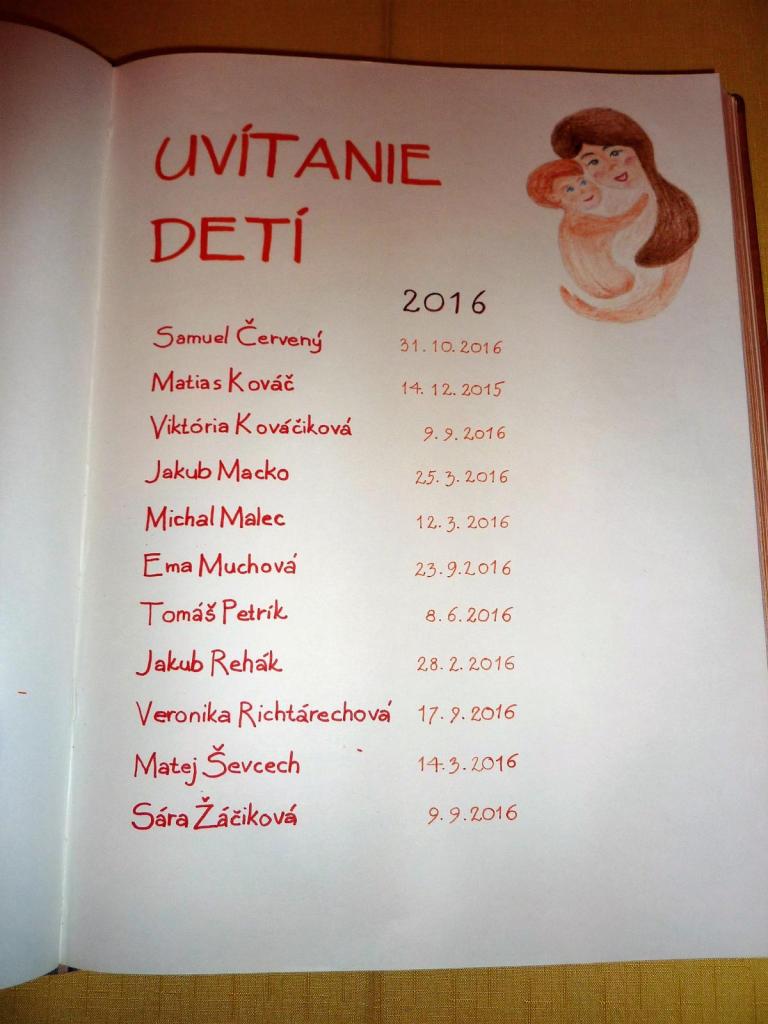 UVÍTANIE
DETÍ
2016
Samuel Červený 31.10.2016
Matias Kováč 14.12.2015
Viktória Kováčiková 9.9.2016
Jakub Macko 25.3.2016
Michal Malec 12.3.2016
Ema Muchová 23.9.2016
Tomáš Petrík 8.6.2016
Jakub Rehák 28.2.2016
Veronika Richtárechová 17.9.2016
Matej Ševcech 14.3.2016
Sára Žáčiková 9.9.2016